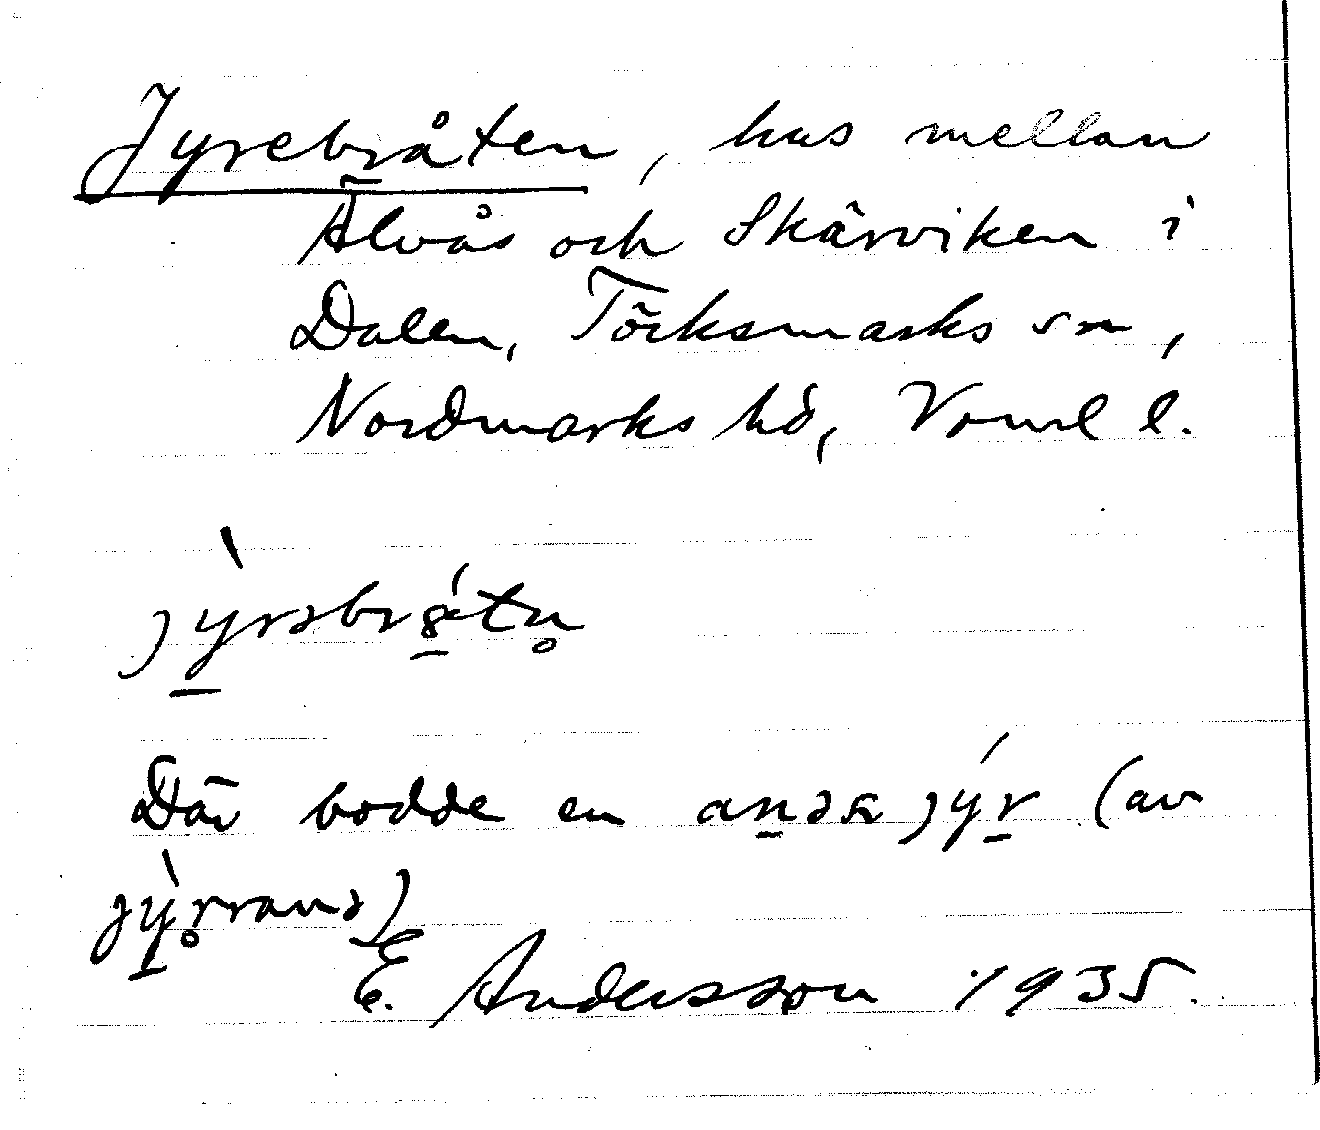 Jyrebråten, hus mellan
Älvås och Skärviken i
Dalen, Töcksmarks sn,
Nordmarks hd, Vrml l.
jỳrəbrátn̥
Där bodde en jýr (av
E. Andersson 1935.